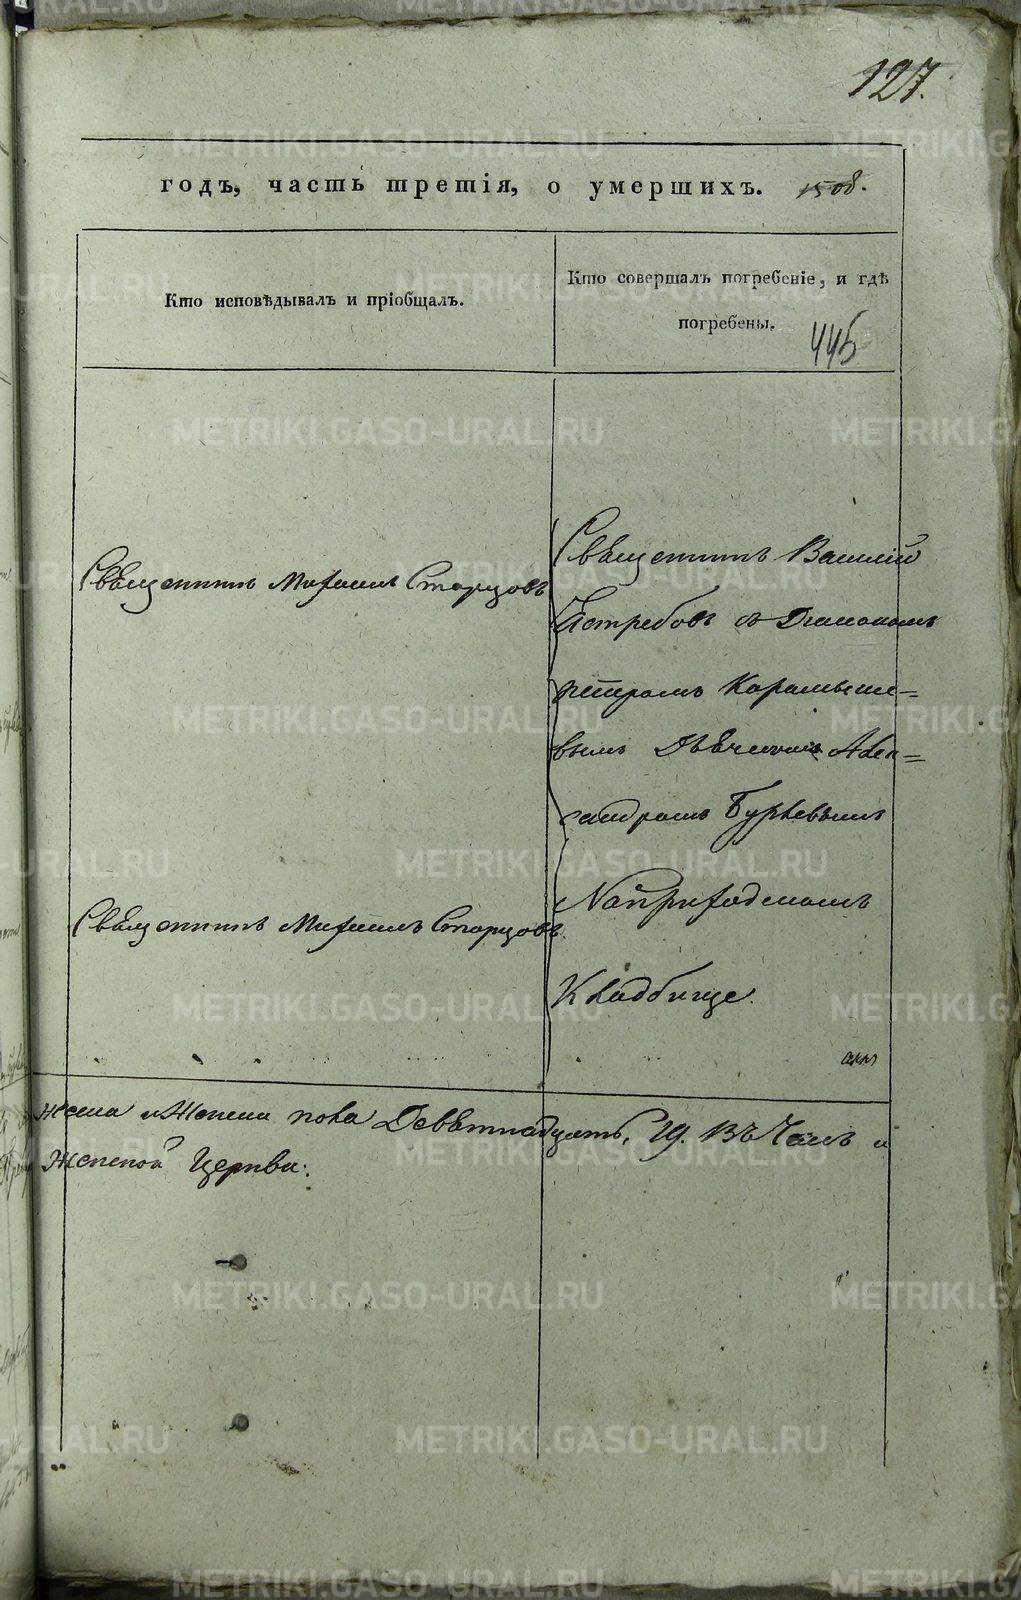 127.
годъ, часть третія, о умершихъ. 1508.
Кто исповѣдывалъ и пріобщалъ.
Кто совершалъ погребеніе, и гдѣ
погребены.
445
Священникъ Михаилъ Старцовъ
Священникъ Василій
Ястребовъ съ Діакономъ
Петромъ Карамыше=
вымъ Дьячкомъ Алек=
сандромъ Бурвевымъ
На приходскомъ
Кладбище.
Священникъ Михаилъ Старцовъ.
Женска пола Девятнадцать, 19. Въ
Церкви.
METRIKI.GASO-URAL.RU